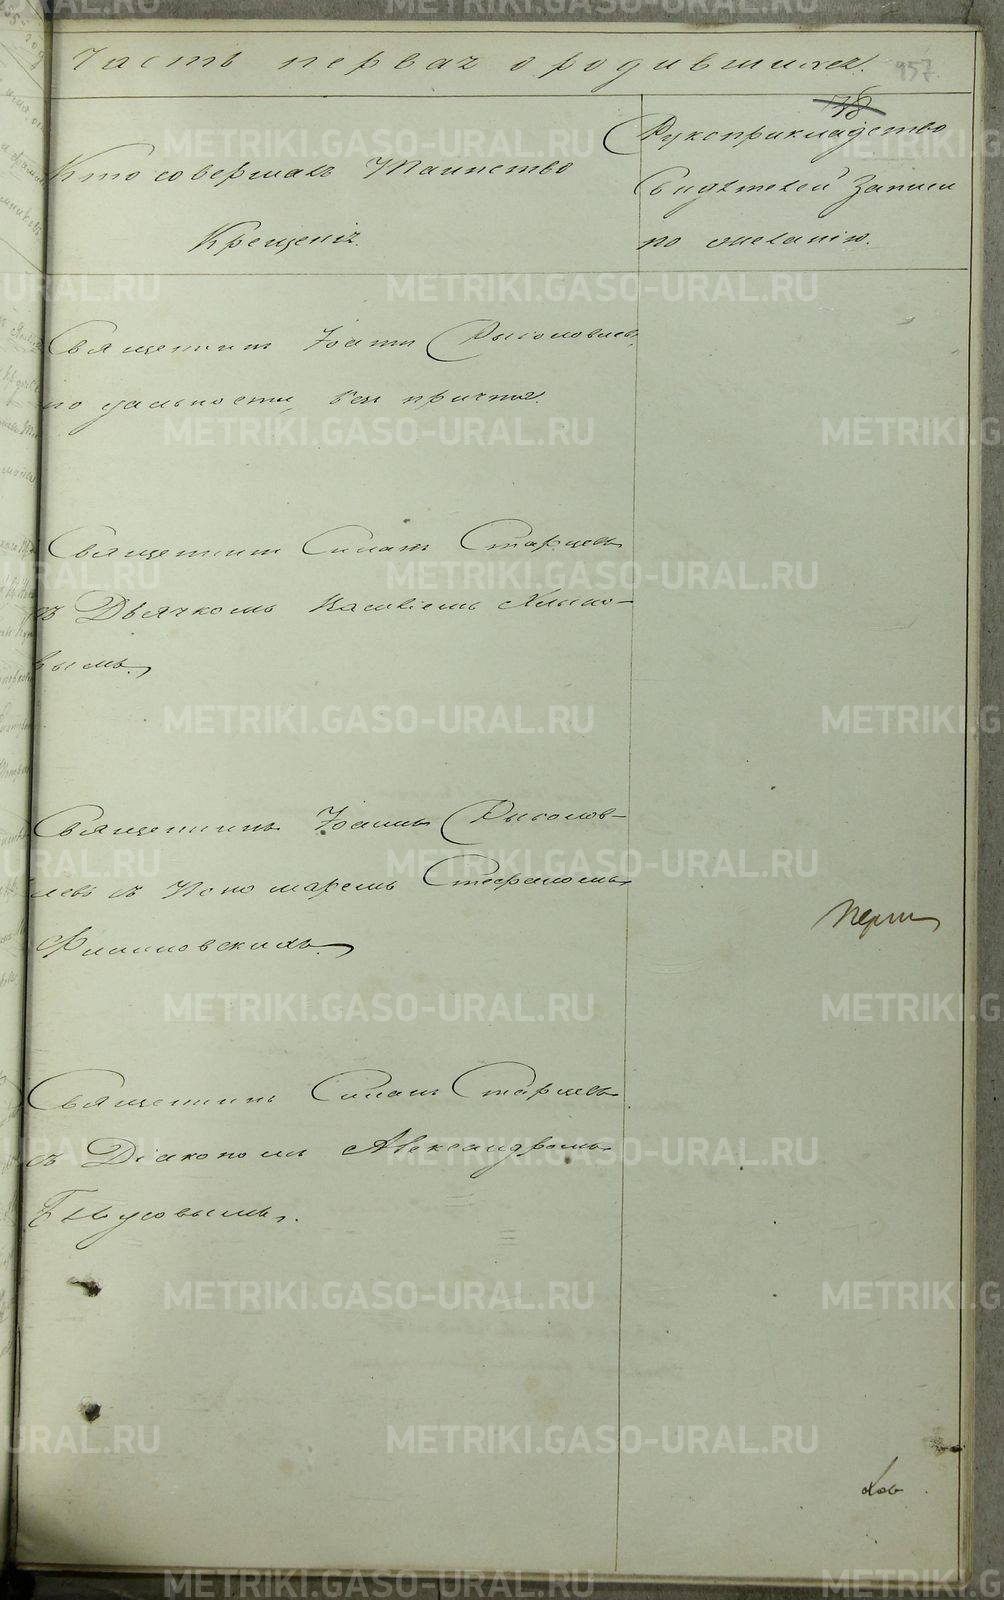 Часть первая о родившихся.
957
78
Кто совершалъ Таинство
Крещенія.
Рукоприкладство
свидѣтелей записи
по желанію.
Священникъ Іоаннъ
по дальности безъ причта.
Священникъ Симонъ Старцевъ
съ Дьячкомъ Василіемъ Хлыно-
вымъ.
Священникъ Іоаннъ
съ Пономаремъ Стефаномъ
Филиповскихъ.
Священникъ Симонъ Старцевъ
съ Діакономъ Александромъ
METRIKI.GASO-URAL.RU